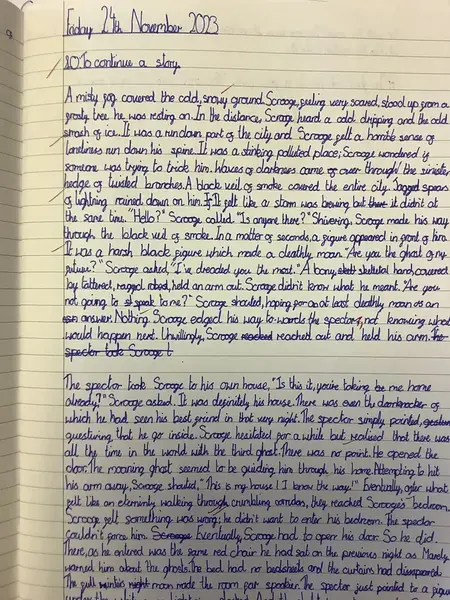 Friday 24th November 2023
LO: To continue a story
A misty fog covered the cold, snowy ground. Scrooge, feeling very scared, stood up from a
frosty tree he was resting on. In the distance, Scrooge heard a cold dripping and the cold
smash of ice. It was a rundown part of the city and Scrooge felt a horrible sense of
loneliness run down his spine. It was a stinking polluted place; Scrooge wondered if
someone was trying to trick him. Waves of darkness came of over through the sinister
hedge of twisted branches. A black veil of smoke covered the entire city. Jagged spears
of lightning rained down on him. It felt like a storm was brewing but it didn't at
the same time. "Hello?" Scrooge called. "Is anyone there?" Shivering, Scrooge made his way
through the black veil of smoke. In a matter of seconds, a figure appeared in front of him.
It was a harsh black figure which made a deathly moan. "Are you the ghost of my
future?" Scrooge asked, "I've dreaded you the most." A bony, skeletal hand, covered
by tattered, ragged robed, held an arm out. Scrooge didn't know what he meant. "Are you
not going to speak to me?" Scrooge shouted, hoping for at least deathly moan as an
answer. Nothing. Scrooge edged his way to-wards the spector, not knowing what
would happen next. Unwillingly, Scrooge reached out and held his arm. The
spector took Scrooge t
The spector took Scrooge to his own house, "Is this it, you're taking me home
already?" Scrooge asked. It was definitely his house. There was even the doorknocker of
which he had seen his best friend in that very night. The spector simply pointed,
gesturing that he go inside. Scrooge hesitated for a while but realised that there was
all the time in the world with the third ghost. There was no point. He opened the
door. The moaning ghost seemed to be guiding him through his home. Attempting to hit
his arm away, Scrooge shouted, "This is my house! I know the way!" Eventually, after what
felt like an eterninty walking through crumbling corridors, they reached Scrooge's bedroom.
Scrooge felt something was wrong; he didn't want to enter his bedroom. The spector
couldn't force him. Eventually, Scrooge had to open his door. So he did.
There, as he entered was the same red chair he had sat on the previous night as Marely
warned him about the ghosts. The bed had no bedsheets and the curtains had disappeared.
The full moon made the room far spookier. The spector just pointed to a figure